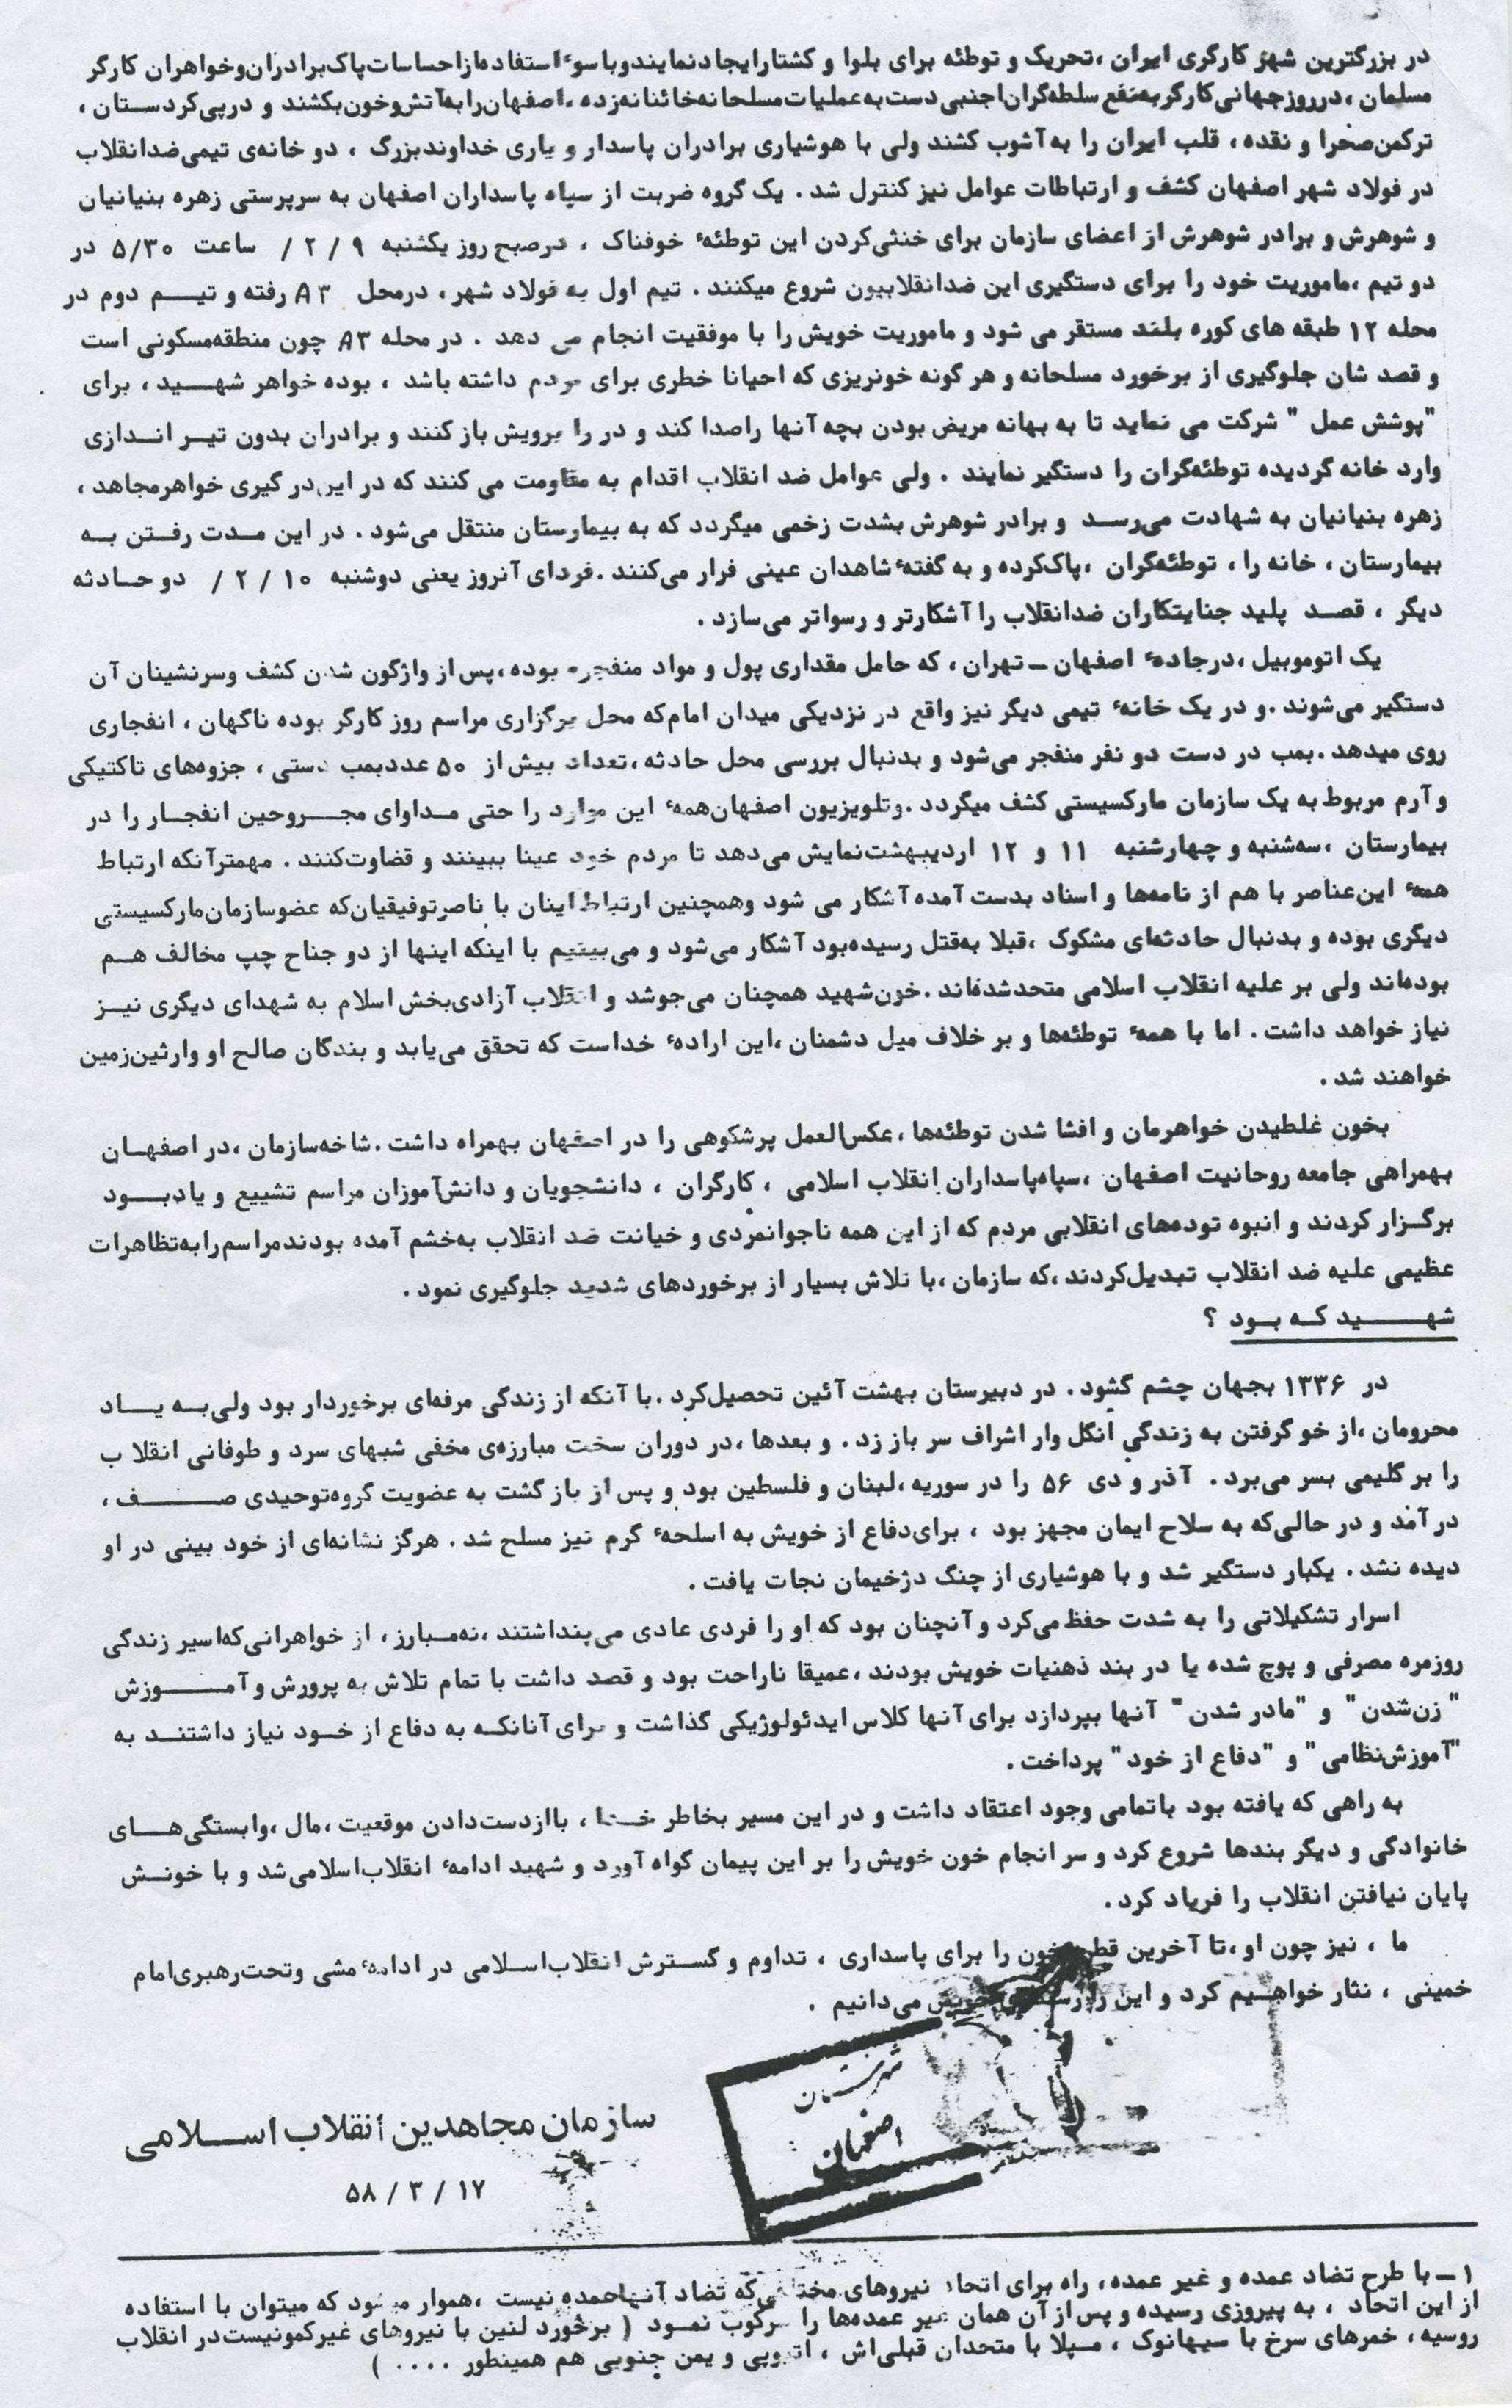 در بزرگترین شهر کارگری ایران ،تحریک و توطئه برای بلوا و کشتارایجادنمایندوباسوءاستفاده‌ازاحساسات‌پاک‌برادران‌وخواهران کارگر
مسلمان ،درروزجهانی‌کارگربه‌نفع سلطه‌گران‌اجنبی‌دست‌به‌عملیات‌مسلحانه‌خائنانه‌زده ،اصفهان‌رابه‌آتش‌وخون‌بکشند و درپی‌کردستان ،
ترکمن‌صحرا و نقده ، قلب ایران را به آشوب کشند ولی با هوشیاری برادران پاسدار و یاری خداوندبزرگ ، دو خانه‌ی تیمی‌ضدانقلاب
در فولاد شهر اصفهان کشف و ارتباطات عوامل نیز کنترل شد . یک گروه ضربت از سپاه پاسداران اصفهان به سرپرستی زهره بنیانیان
و شوهرش و برادر شوهرش از اعضای سازمان برای خنثی‌کردن این توطئهٔ خوفناک ، درصبح روز یکشنبه ۹ / ۲ / ساعت ۵/۳۰ در
دو تیم ،ماموریت خود را برای دستگیری این ضدانقلابیون شروع میکنند . تیم اول به فولاد شهر ، درمحل A۳ رفته و تیـــم دوم در
محله ۱۲ طبقه های کوره بلند مستقر می شود و ماموریت خویش را با موفقیت انجام می دهد . در محله A۳ چون منطقه‌مسکونی است
و قصد شان جلوگیری از برخورد مسلحانه و هر گونه خونریزی که احیانا خطری برای مردم داشته باشد ، بوده خواهر شهـــید ، برای
"پوشش عمل " شرکت می نماید تا به بهانه مریض بودن بچه آنها راصدا کند و در را برویش باز کنند و برادران بدون تیــر انــدازی
وارد خانه گردیده توطئه‌گران را دستگیر نمایند . ولی عوامل ضد انقلاب اقدام به مقاومت می کنند که در این‌در گیری خواهرمجاهد ،
زهره بنیانیان به شهادت می‌رسـد و برادر شوهرش بشدت زخمی میگردد که به بیمارستان منتقل می‌شود . در این مــدت رفــتن بــه
بیمارستان ، خانه را ، توطئه‌گران ،پاک‌کرده و به گفتهٔ شاهدان عینی فرار می‌کنند .فردای آنروز یعنی دوشنبه ۱۰ / ۲ / دو حــادثه
دیگر ، قصــد پلید جنایتکاران ضدانقلاب را آشکارتر و رسواتر می‌سازد .
یک اتوموبیل ،درجادهٔ اصفهان ــ تهران ، که حامل مقداری پول و مواد منفجره بوده ،پس‌از واژگون شدن کشف وسرنشینان آن
دستگیر می‌شوند .و در یک خانهٔ تیمی دیگر نیز واقع در نزدیکی میدان امام‌که محل برگزاری مراسم روز کارگر بوده ناگهان ، انفجاری
روی میدهد .بمب در دست دو نفر منفجر می‌شود و بدنبال بررسی محل حادثه ،تعداد بیش از ۵۰ عددبمب دستی ، جزوه‌های تاکتیکی
و آرم مربوط به یک سازمان مارکسیستی کشف میگردد .وتلویزیون اصفهان‌همهٔ این موارد را حتی مــداوای مجـــروحین انفجــار را در
بیمارستان ،سه‌شنبه و چهارشنبه ۱۱ و ۱۲ اردیبهشت‌نمایش می‌دهد تا مردم خود عینا ببینند و قضاوت‌کنند . مهمترآنکه ارتباط
همهٔ این‌عناصر با هم از نامه‌ها و اسناد بدست آمده آشکار می شود وهمچنین ارتباط اینان با ناصرتوفیقیان‌که عضوسازمان‌مارکسیستی
دیگری بوده و بدنبال حادثه‌ای مشکوک ،قبلا به‌قتل رسیده‌بود آشکار می‌شود و می‌بینیم با اینکه اینها از دو جناح چپ مخالف هــم
بوده‌اند ولی بر علیه انقلاب اسلامی متحدشده‌اند .خون‌شهید همچنان می‌جوشد و انقلاب آزادی‌بخش‌اسلام به شهدای دیگری نیــز
نیاز خواهد داشت . اما با همهٔ توطئه‌ها و بر خلاف میل دشمنان ،این ارادهٔ خداست که تحقق می‌یابد و بندگان صالح او وارثین‌زمین
خواهند شد .
بخون غلطیدن خواهرمان و افشا شدن توطئه‌ها ،عکس‌العمل پرشکوهی را در اصفهان بهمراه داشت .شاخه‌سازمان ،در اصفهــان
بهمراهی جامعه روحانیت اصفهان ،سپاه‌پاسداران انقلاب اسلامی ، کارگران ، دانشجویان و دانش‌آموزان مراسم تشییع و یادبـــود
برگــزار کردند و انبوه توده‌های انقلابی مردم که از این همه ناجوانمردی و خیانت ضد انقلاب به‌خشم آمده بودندمراسم‌رابه‌تظاهرات
عظیمی علیه ضد انقلاب تبدیل‌کردند ،که سازمان ،با تلاش بسیار از برخوردهای شدید جلوگیری نمود .
شهـــــید کــه بــود ؟
در ۱۳۳۶ بجهان چشم گشود . در دبیرستان بهشت آئین تحصیل‌کرد .با آنکه از زندگی مرفه‌ای برخوردار بود ولی‌بــه یـــاد
محرومان ،از خو گرفتن به زندگی انگل وار اشراف سر باز زد . و بعدها ،در دوران سخت مبارزه‌ی مخفی شبهای سرد و طوفانی انقلا ب
را بر گلیمی بسر می‌برد . آذر و دی ۵۶ را در سوریه ،لبنان و فلسطین بود و پس از باز گشت به عضویت گروه‌توحیدی صـــــف ،
در آمد و در حالی‌که به سلاح ایمان مجهز بود ، برای‌دفاع از خویش به اسلحهٔ گرم نیز مسلح شد . هرگز نشانه‌ای از خود بینی در او
دیده نشد . یکبار دستگیر شد و با هوشیاری از چنگ دژخیمان نجات یافت .
اسرار تشکیلاتی را به شدت حفظ می‌کرد و آنچنان بود که او را فردی عادی می‌پنداشتند ،نه‌مــبارز ، از خواهرانی‌که‌اسیر زندگی
روزمره مصرفی و پوچ شده یا در بند ذهنیات خویش بودند ،عمیقا ناراحت بود و قصد داشت با تمام تلاش به پرورش و آمـــــوزش
" زن‌شدن " و "مادر شدن " آنها بپردازد برای آنها کلاس ایدئولوژیکی گذاشت و برای آنانکــه به دفاع از خــود نیاز داشتنــد به
"آموزش‌نظامی " و "دفاع از خود " پرداخت .
به راهی که یافته بود باتمامی وجود اعتقاد داشت و در این مسیر بخاطر خــدا ، باازدست‌دادن موقعیت ،مال ،وابستگی‌هــای
خانوادگی و دیگر بندها شروع کرد و سر انجام خون خویش را بر این پیمان گواه آورد و شهید ادامهٔ انقلاب‌اسلامی‌شد و با خونــش
پایان نیافتن انقلاب را فریاد کرد .
ما ، نیز چون او ،تا آخرین خون را برای پاسداری ، تداوم و گسترش انقلاب‌اسلامی در ادامهٔ مشی وتحت‌رهبری‌امام
خمینی ، نثار خواهــیم کرد و این را خویش می‌دانیم .
اصفهان
سازمان مجاهدین انقلاب اســلامی
۱۷ / ۳ / ۵۸
۱ ــ با طرح تضاد عمده و غیر عمده ، راه برای اتحاد نیروهای مختلفی‌که تضاد آنهاعمده نیست ،هموار میشود که میتوان با استفاده
از این اتحاد ، به پیروزی رسیده و پس‌از آن همان غیر عمده‌ها را سرکوب نمــود ( برخورد لنین با نیروهای غیرکمونیست‌در انقلاب
روسیه ، خمرهای سرخ با سیهانوک ، مــپلا با متحدان قبلی‌اش ، اتیوپی و یمن جنوبی هم همینطور .... )